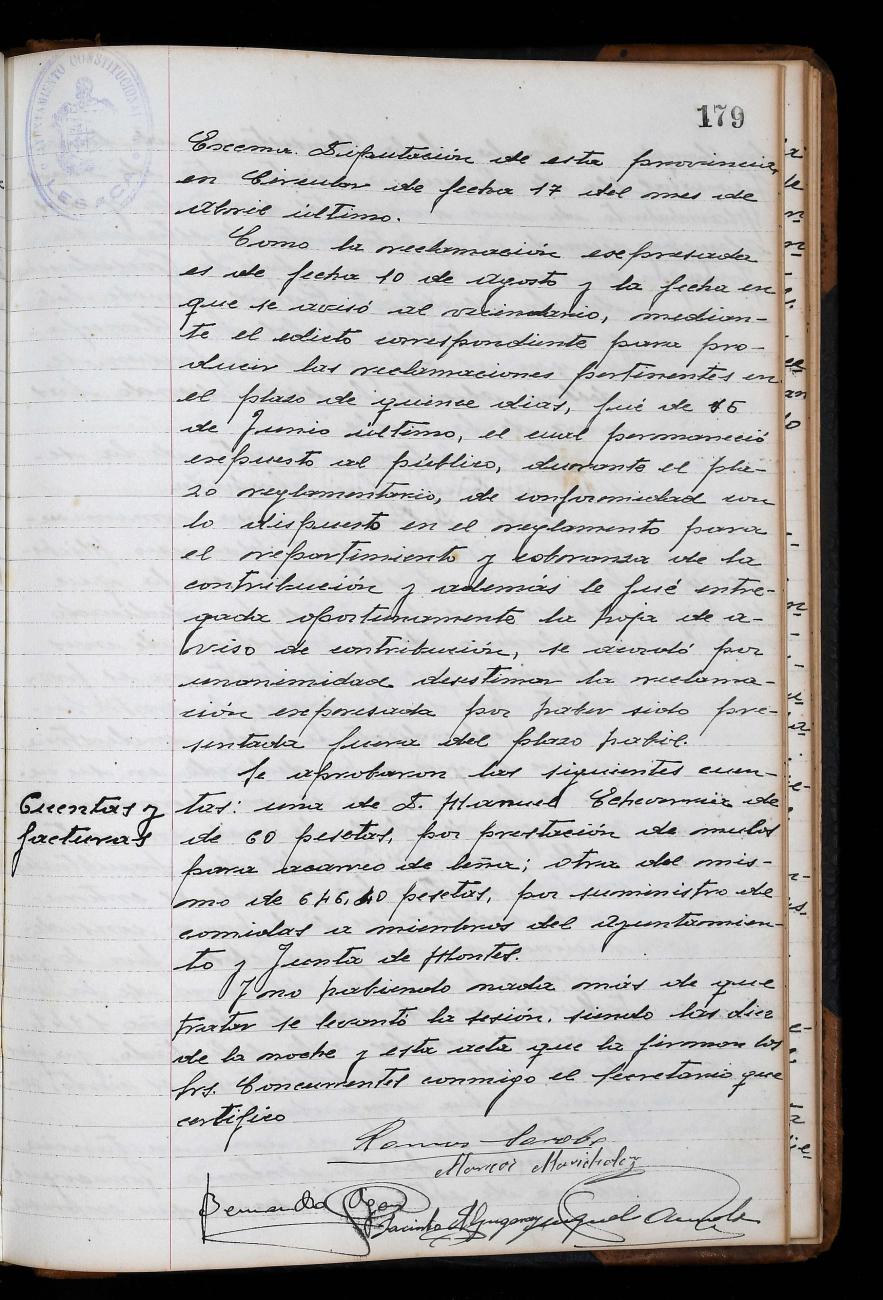 AYUNTAMIENTO CONSTITUCIONAL
LESACA
179
Excma. Diputación de esta provincia,
en Circular de fecha 17 del mes de
Abril último.
Como la reclamación expresada
es de fecha 10 de Agosto y la fecha en
que se avisó al vecindario, median-
te el edicto correspondiente para pro-
ducir las reclamaciones pertinentes en
el plazo de quince dias, fué de 15
de Junio último, el cual permaneció
expuesto al público, durante el pla-
zo reglamentario, de conformidad con
lo dispuesto en el reglamento para
el repartimiento y cobranza de la
contribución y además le fué entre-
gada oportunamente la hoja de a-
viso de contribución, se acordó por
unanimidad desestimar la reclama-
ción expresada por haber sido pre-
sentada fuera del plazo habil.
Se aprobaron las siguientes cuen-
Cuentas y
facturas
tas: una de D. Manuel Echeverria de
de 60 pesetas, por prestación de mulos
para acarreo de leña; otra del mis-
mo de 646,40 pesetas, por suministro de
comidas a miembros del Ayuntamien-
to y Junta de Montes.
Y no habiendo nada más de que
tratar se levantó la sesión, siendo las diez
de la noche y esta acta que la firman los
Srs. Concurrentes conmigo el Secretario que
certifico
Marcos
Bernardo
Jacinto
Miguel